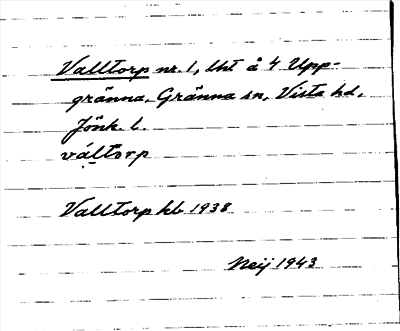 Valltorp nr. 1, lht å 4 Upp-
gränna, Gränna sn, Vista hd,
Jönk. l.
váltorp
Valltorp kb 1938
Neij 1943